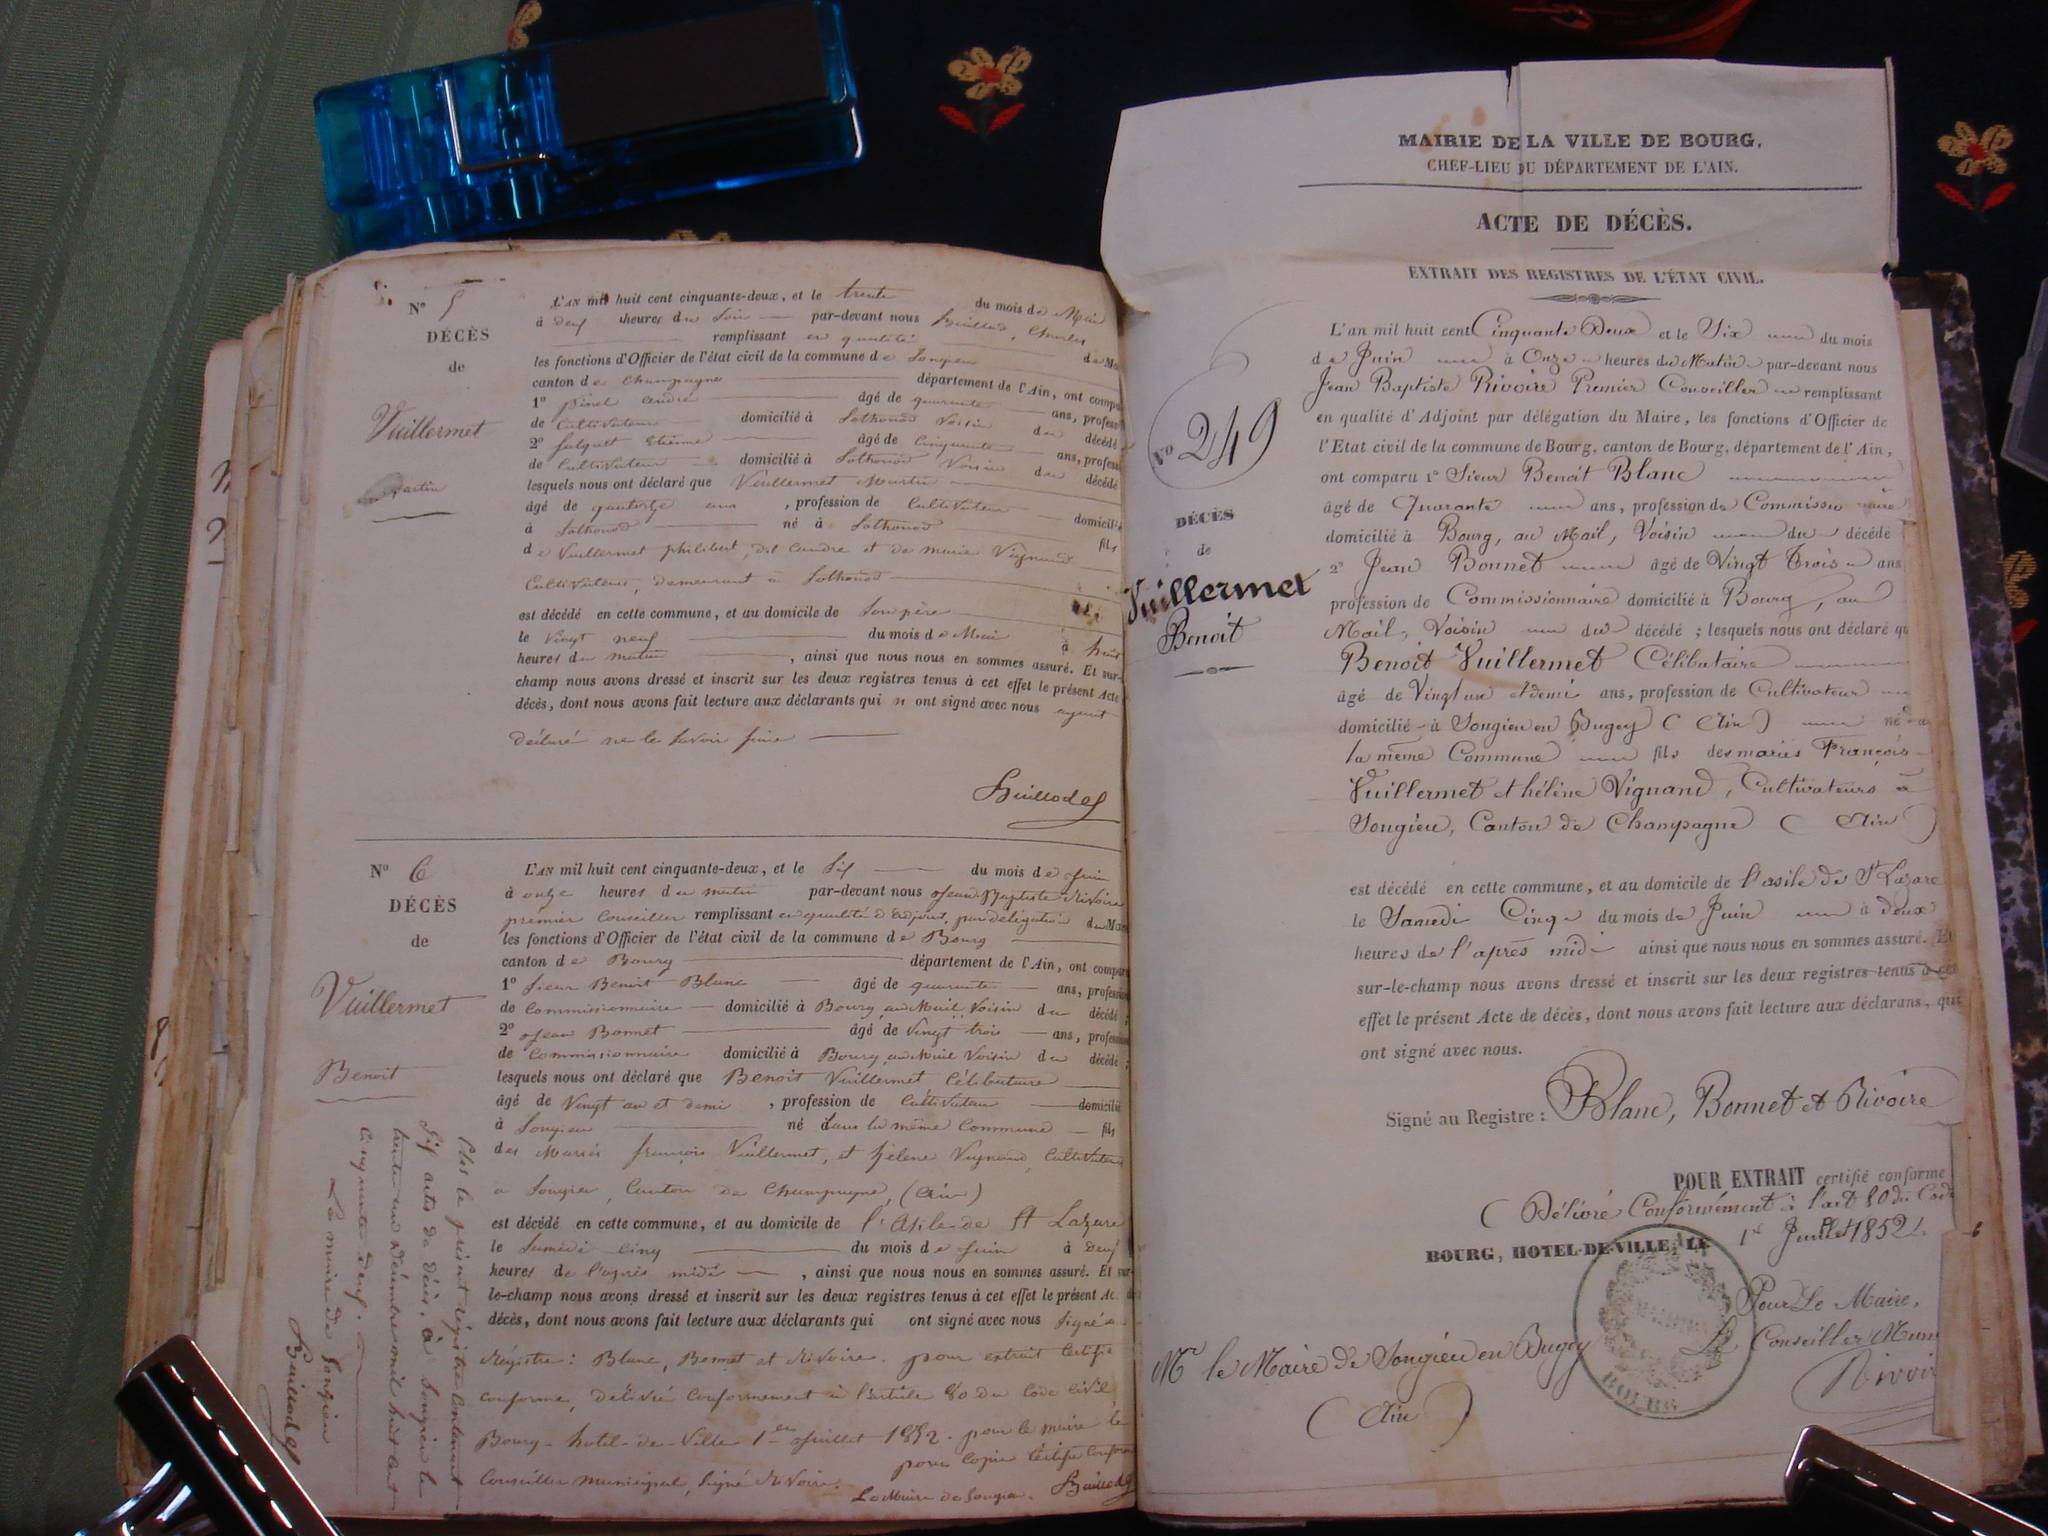 N° 5
DÉCÈS
de
Vuillermet
Martin
L'AN mil huit cent cinquante-deux, et le trente du mois de Mai
à deux heures du soir par-devant nous Huillod, Charles
remplissant en qualité de Ma
les fonctions d'Officier de l'état civil de la commune de Songieu
canton de Champagne département de l'Ain, ont compa
1° pinel andré âgé de quarante ans, profess
de Cultivateur domicilié à Sothonod Voisin du décédé
2° Etienne âgé de Cinquante ans, profess
de Cultivateur domicilié à Sothonod Voisin du décédé
lesquels nous ont déclaré que Vuillermet Martin
âgé de quatorze ans, profession de Cultivateur domicilié
à Sothonod né à Sothonod fils
de Vuillermet philibert, dit Candre et de marie Vignand
Cultivateurs, demeurant à Sothonod
est décédé en cette commune, et au domicile de Son père
le Vingt neuf du mois de Mai à huit
heures du matin, ainsi que nous nous en sommes assuré. Et sur-
champ nous avons dressé et inscrit sur les deux registres tenus à cet effet le présent Acte
décès, dont nous avons fait lecture aux déclarants qui n ont signé avec nous ayant
déclaré ne le Savoir faire
Huillod
N° 6
DÉCÈS
de
Vuillermet
Benoit
L'AN mil huit cent cinquante-deux, et le Six du mois de Juin
à onze heures du matin par-devant nous Jean Baptiste Rivoire
premier Conseiller remplissant en qualité d'adjoint, par délégation du Mai
les fonctions d'Officier de l'état civil de la commune de Bourg
canton de Bourg département de l'Ain, ont compar
1° Sieur Benoit Blanc âgé de quarante ans, profession
de Commissionnaire domicilié à Bourg, au Mail Voisin du décédé ;
2° Jean Bonnet âgé de Vingt trois ans, profession
de Commissionnaire domicilié à Bourg, au Mail Voisin du décédé ;
lesquels nous ont déclaré que Benoit Vuillermet Célibataire
âgé de Vingt un et demi, profession de Cultivateur domicilié
à Songieu né dans la même Commune fils
des Mariés françois Vuillermet, et hélène Vignand, Cultivateurs
a Songieu, Canton de Champagne, (Ain)
est décédé en cette commune, et au domicile de l'Asile de St Lazare
le Samedi Cinq du mois de Juin à deux
heures de l'après midi, ainsi que nous nous en sommes assuré. Et sur-
le-champ nous avons dressé et inscrit sur les deux registres tenus à cet effet le présent Ac. de
décès, dont nous avons fait lecture aux déclarants qui ont signé avec nous Signé a
Régistre : Blanc, Bonnet et Rivoire. pour extrait Certifié
conforme, délivré Conformement à l'article 80 du Code Civil
Bourg-hotel-de-Ville 1er Juillet 1852. pour le maire le
Conseiller municipal, Signé Rivoire. pour Copie Certifié Conforme
Le Maire de Songieu. Huillod
Clos le présent régistre Contenant
Six actes de décès, à Songieu le
trente un Décembre mil huit cent
Cinquante deux.
Le maire de Songieu
Huillod
MAIRIE DE LA VILLE DE BOURG,
CHEF-LIEU DU DÉPARTEMENT DE L'AIN.
ACTE DE DÉCÈS.
EXTRAIT DES REGISTRES DE L'ÉTAT CIVIL.
N° 249
DÉCÈS
de
Vuillermet
Benoit
L'an mil huit cent Cinquante Deux et le Six du mois
de Juin à Onze heures du Matin par-devant nous
Jean Baptiste Rivoire Premier Conseiller remplissant
en qualité d'Adjoint par délégation du Maire, les fonctions d'Officier de
l'Etat civil de la commune de Bourg, canton de Bourg, département de l'Ain,
ont comparu 1° Sieur Benoit Blanc
âgé de Quarante ans, profession de Commissionnaire
domicilié à Bourg, au Mail, Voisin du décédé
2° Jean Bonnet âgé de Vingt Trois ans
profession de Commissionnaire domicilié à Bourg, au
Mail, Voisin du décédé ; lesquels nous ont déclaré qu
Benoit Vuillermet Célibataire
âgé de Vingt un et demi ans, profession de Cultivateur
domicilié à Songieu en Bugey (Ain) né da
la même Commune fils des mariés François
Vuillermet et hélène Vignand, Cultivateurs à
Songieu, Canton de Champagne (Ain)
est décédé en cette commune, et au domicile de l'asile de St Lazare
le Samedi Cinq du mois de Juin à deux
heures de l'après midi ainsi que nous nous en sommes assuré. Et
sur-le-champ nous avons dressé et inscrit sur les deux registres tenus à cet
effet le présent Acte de décès, dont nous avons fait lecture aux déclarans, qui
ont signé avec nous.
Signé au Registre : Blanc, Bonnet et Rivoire
POUR EXTRAIT certifié conforme
(Délivré Conformément à l'art 80 du Code
BOURG, HOTEL-DE-VILLE, LE 1er Juillet 1852
Pour Le Maire,
Le Conseiller Muni
Rivoir
Mr le Maire de Songieu en Bugey
(Ain)
BOURG